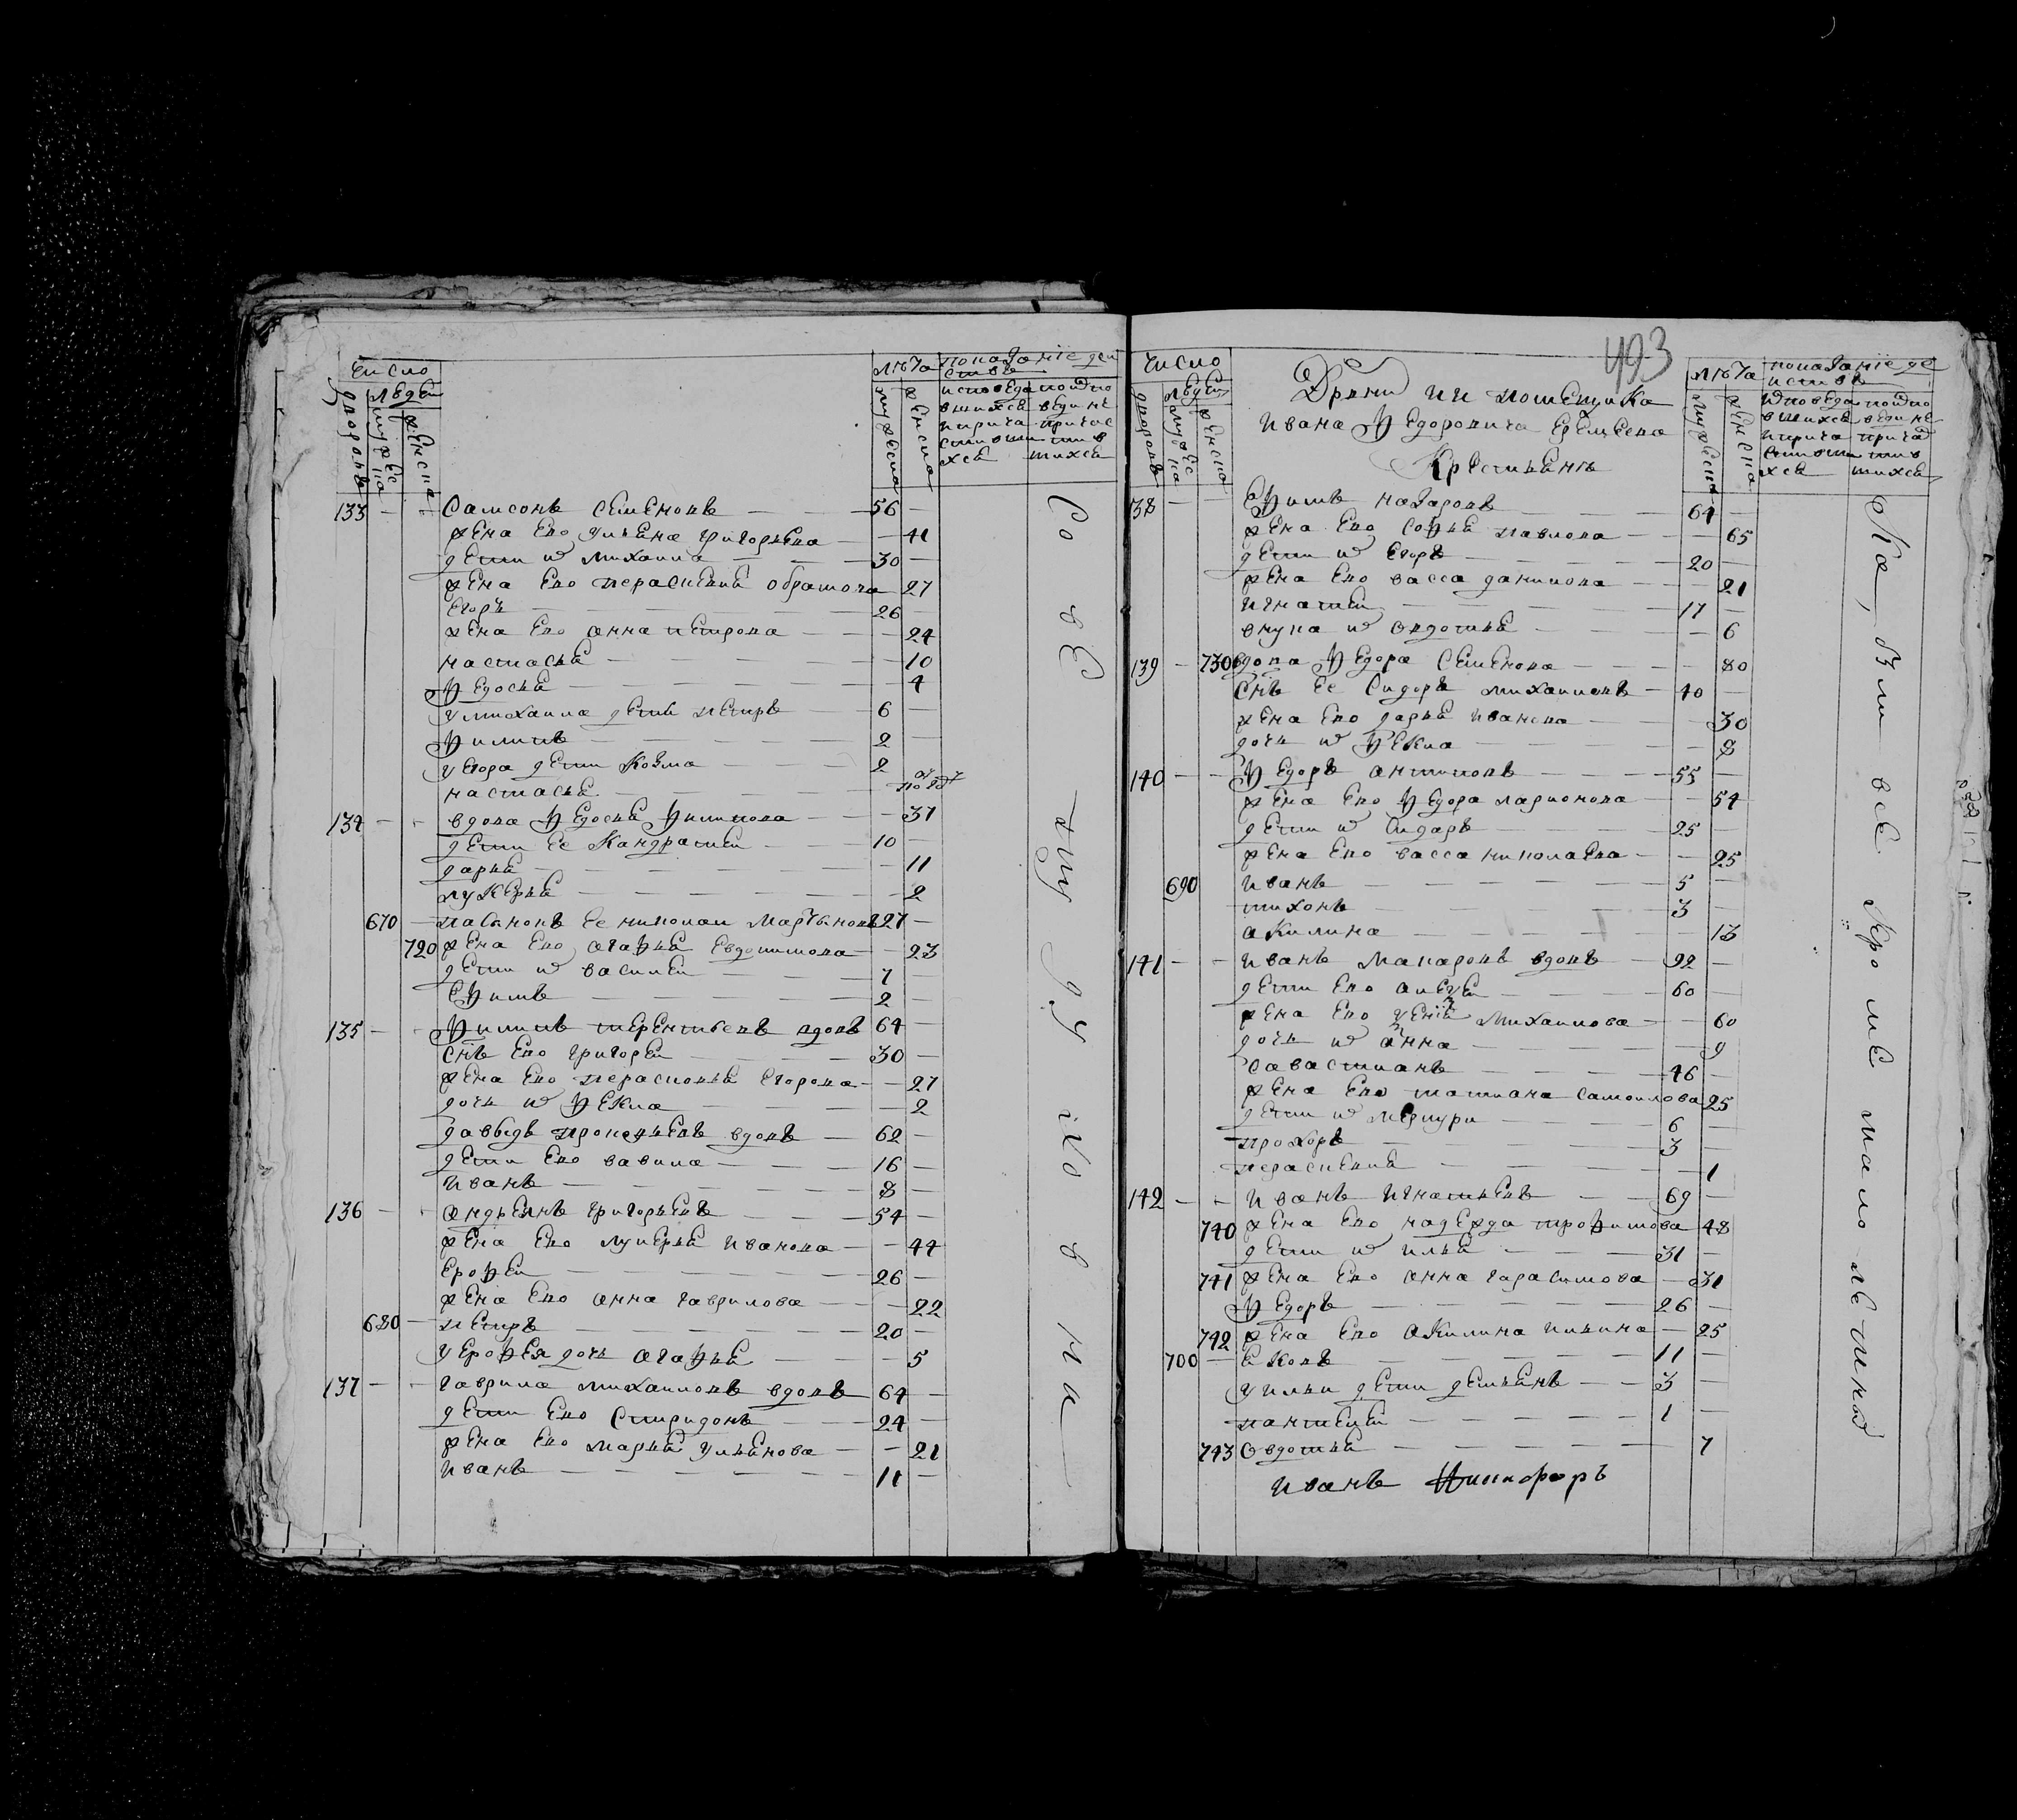 число
лѣта
показание дей
ствъ
дворовъ
людей
мужеска
женска
мужеска
женска
исповеда
вшихся
и прича
стивши
хся
133 Самсонъ Семеновъ 56
жена ево ульяна григорьева 41
дети их михаила 30
жена ево перасковия абрамова 27
Егоръ 26
жена ево анна петрова 24
настасья 10
Ѳедосья 4
у михаила дети петръ 6
Филипъ 2
у егора дети Козма 2
настасья
134 вдова Ѳедосья Филипова 31
дети ее Кандратей 10
дарья 11
лукерья 2
670 пасынокъ ее николаи Мартыновъ 27
720 жена ево агафья Евдокимова 23
дети их василеи 7
Ефимъ 2
135 Филипъ терентьевъ вдовъ 64
снъ ево григореи 30
жена ево перасковья Егорова 27
дочь их Ѳекла 2
давыдъ прокофьевъ вдовъ 62
дети ево вавила 16
иванъ 8
136 андреянъ григорьевъ 54
жена ево лукерья иванова 44
Ерофеи 26
жена ево анна гаврилова 22
680 петръ 20
у Ерофея дочь агафья 5
137 гаврила михаиловъ вдовъ 64
дети ево Спиридонъ 24
жена ево марья ульянова 21
иванъ 11
Со всем
493
число
дворовъ
людей
мужеска
женска
Дрвни помещика
ивана Ѳедоровича
Крестьянъ
лѣта
показание де
иствъ
мужеска
женска
138 Ефимъ назаровъ 64
жена ево софья павлова 65
дети их Егоръ 20
жена ево васса данилова 21
игнатеи 17
внука их овдотья 6
139 730 вдова Ѳедора Семенова 80
снъ ее Сидоръ михаиловъ 40
жена ево дарья иванова 30
дочь их Ѳекла 8
140 Ѳедоръ антиповъ 55
жена ево Ѳедора ларионова 54
дети их Сидаръ 25
жена ево васса николаева 25
690 иванъ 5
тихонъ 3
акилина 13
141 иванъ Макаровъ вдовъ 92
дети ево алексеи 60
жена ево ксения Михаилова 60
дочь их анна 9
савастианъ 46
жена ево татиана самоилова 25
дети их меркури 6
прохоръ 3
перасковия 1
142 иванъ игнатьевъ 69
740 жена ево надежда трофимова 48
дети их илья 31
741 жена ево анна гарасимова 31
Ѳедоръ 26
742 жена ево акилина ильина 25
700 яковъ 11
у ильи дети демьянъ 3
пантелеи 1
743 овдотья 7
иванъ Никифоръ
взяли все кроме малолетнов